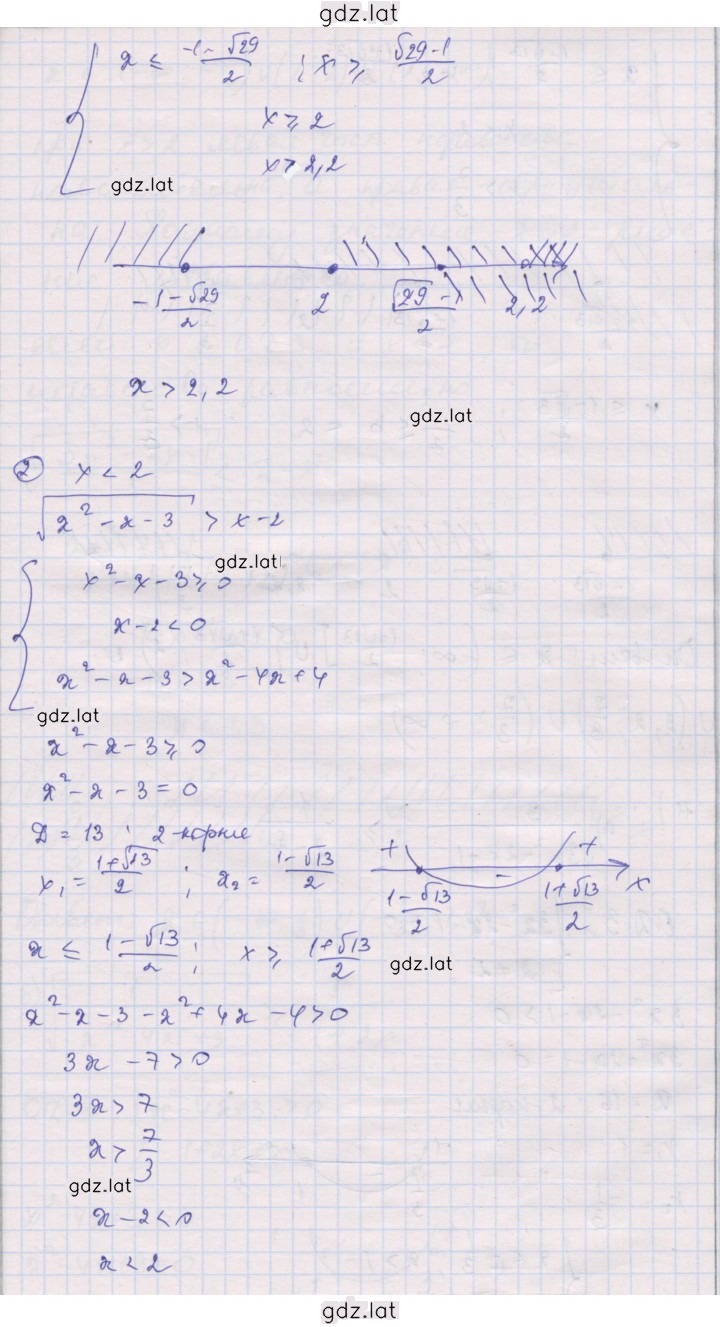 gdz.lat
x ≤ (-1-√29)/2 ; x ≥ (√29-1)/2
x ≥ 2
x > 2,2
gdz.lat
(-1-√29)/2 2 (√29-1)/2 2,2
x > 2,2
gdz.lat
② x < 2
√(x²-x-3) > x-2
gdz.lat
x²-x-3 ≥ 0
x-2 < 0
x²-x-3 > x²-4x+4
gdz.lat
x²-x-3 ≥ 0
x²-x-3 = 0
Д = 13 ; 2-корня
x₁ = (1+√13)/2 ; x₂ = (1-√13)/2
+ - +
(1-√13)/2 (1+√13)/2 x
x ≤ (1-√13)/2 ; x ≥ (1+√13)/2
gdz.lat
x²-x-3-x²+4x-4>0
3x-7>0
3x>7
x > 7/3
gdz.lat
x-2<0
x<2
gdz.lat